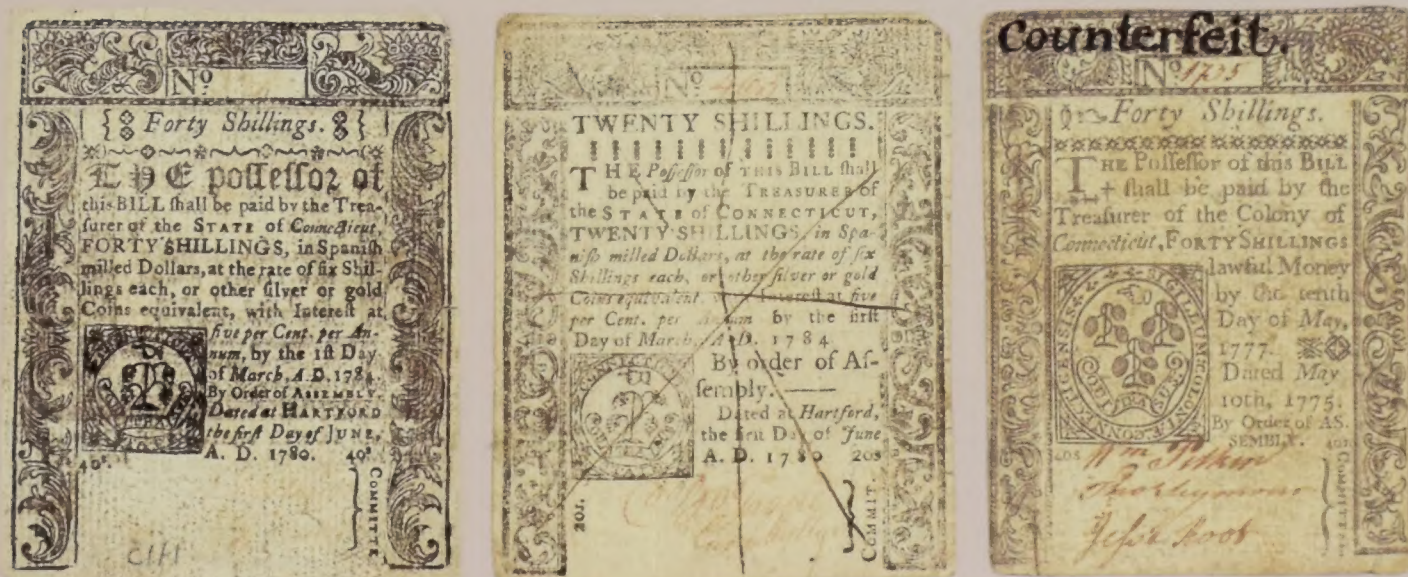 No.
{ Forty Shillings. }
THE possessor of
this BILL ſhall be paid by the Trea-
ſurer of the STATE of Connecticut,
FORTY SHILLINGS, in Spaniſh
milled Dollars, at the rate of ſix Shil-
lings each, or other ſilver or gold
Coins equivalent, with Intereſt at
five per Cent. per An-
num, by the 1ſt Day
of March, A.D. 1784.
By Order of ASSEMBLY.
Dated at HARTFORD
the firſt Day of JUNE,
A. D. 1780.
40s. 40s.
COMMITTE
No.
TWENTY SHILLINGS.
THE Poſſeſſor of THIS BILL ſhall
be paid by the TREASURER of
the STATE of CONNECTICUT,
TWENTY SHILLINGS, in Spa-
niſh milled Dollars, at the rate of ſix
Shillings each, or other ſilver or gold
Coins equivalent, with Intereſt at five
per Cent. per Annum by the firſt
Day of March, A. D. 1784
By order of Aſ-
ſembly. ——
Dated at Hartford,
the firſt Day of June
A. D. 1780 20s
20s.
COMMIT.
Counterfeit.
No. 1725
Forty Shillings.
THE Poſſeſſor of this BILL
+ ſhall be paid by the
Treaſurer of the Colony of
Connecticut, FORTY SHILLINGS
lawful Money
by the tenth
Day of May,
1777.
Dated May
10th, 1775.
By Order of AS-
SEMBLY.
SIGILLUM COLONIÆ CONNECTICENSIS
40s 40s
COMMITTEE
Wm Pitkin
Tho Seymour
Jeſse Root